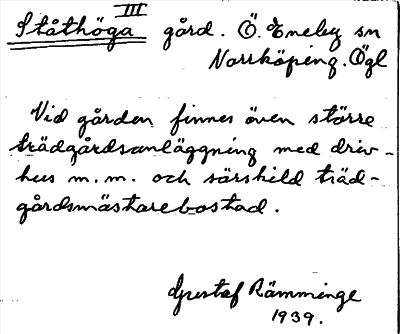 III
Ståthöga gård. Ö. Eneby sn
Norrköping. Ögl
Vid gården finnes även större
trädgårdsanläggning med driv-
hus m.m. och särskild träd-
gårdsmästarebostad.
Gustaf Rämminge
1939.